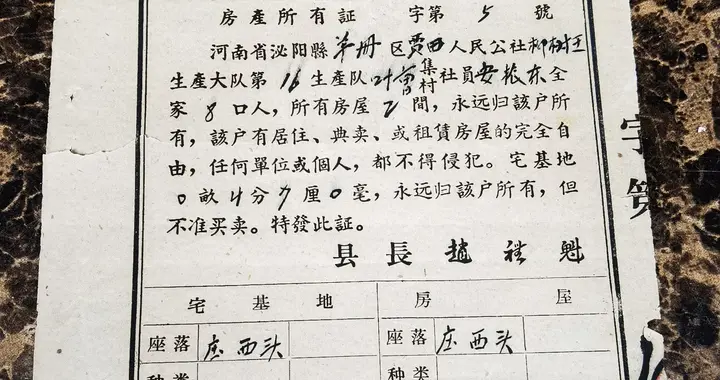 房產所有証 字第 5 號
河南省泌阳縣羊册区賈西人民公社柳树王
生產大队第16生產队叶崗集村社員安振东全
家8口人，所有房屋7間，永远归該户所
有，該户有居住、典卖、或租賃房屋的完全自
由，任何單位或個人，都不得侵犯。宅基地
0畝4分7厘0毫，永远归該户所有，但
不准买卖。特發此証。
县長 趙 魁
宅基地 房屋
座落 庄西头 座落 庄西头
种类 种类
字第